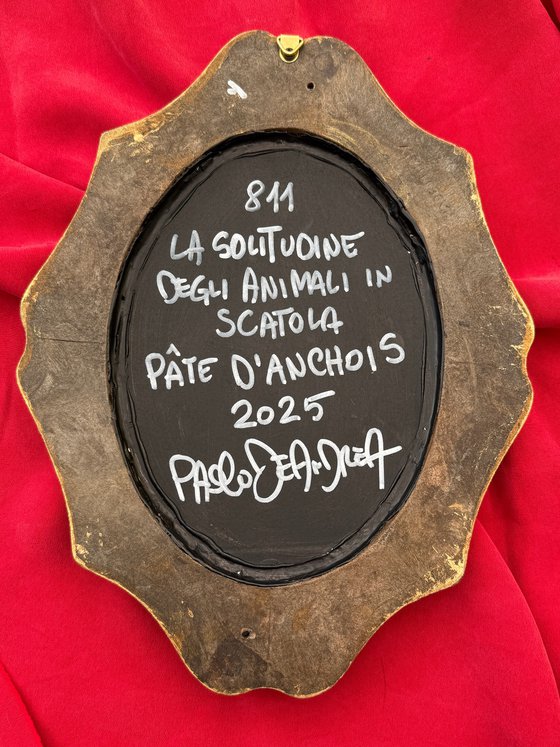 811
LA SOLITUDINE
DEGLI ANIMALI IN
SCATOLA
PÂTE D'ANCHOIS
2025
PAOLO DEANDREA